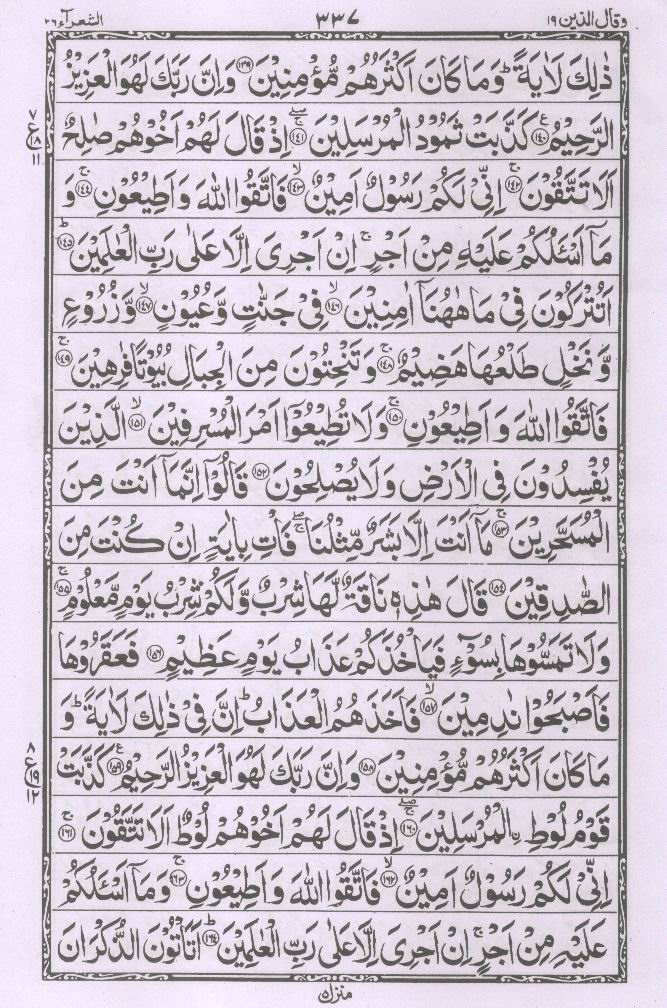 وقال الذين ١٩ ٣٣٧ الشعرآء ٢٦
ذٰلِكَ لَاٰيَةً ؕ وَمَا كَانَ اَكْثَرُهُمْ مُّؤْمِنِيْنَ ﴿۱۳۹﴾ وَاِنَّ رَبَّكَ لَهُوَ الْعَزِيْزُ
الرَّحِيْمُ ﴿۱۴۰﴾ كَذَّبَتْ ثَمُوْدُ الْمُرْسَلِيْنَ ﴿۱۴۱﴾ اِذْ قَالَ لَهُمْ اَخُوْهُمْ صٰلِحٌ
٧ ع ١٨ ١١
اَلَا تَتَّقُوْنَ ﴿۱۴۲﴾ اِنِّيْ لَكُمْ رَسُوْلٌ اَمِيْنٌ ﴿۱۴۳﴾ فَاتَّقُوا اللّٰهَ وَاَطِيْعُوْنِ ﴿۱۴۴﴾ وَ
مَاۤ اَسْـَٔلُكُمْ عَلَيْهِ مِنْ اَجْرٍ ۚ اِنْ اَجْرِيَ اِلَّا عَلٰى رَبِّ الْعٰلَمِيْنَ ﴿۱۴۵﴾
اَتُتْرَكُوْنَ فِيْ مَا هٰهُنَاۤ اٰمِنِيْنَ ﴿۱۴۶﴾ فِيْ جَنّٰتٍ وَّعُيُوْنٍ ﴿۱۴۷﴾ وَّزُرُوْعٍ
وَّنَخْلٍ طَلْعُهَا هَضِيْمٌ ﴿۱۴۸﴾ وَتَنْحِتُوْنَ مِنَ الْجِبَالِ بُيُوْتًا فٰرِهِيْنَ ﴿۱۴۹﴾
فَاتَّقُوا اللّٰهَ وَاَطِيْعُوْنِ ﴿۱۵۰﴾ وَلَا تُطِيْعُوْۤا اَمْرَ الْمُسْرِفِيْنَ ﴿۱۵۱﴾ الَّذِيْنَ
يُفْسِدُوْنَ فِي الْاَرْضِ وَلَا يُصْلِحُوْنَ ﴿۱۵۲﴾ قَالُوْۤا اِنَّمَاۤ اَنْتَ مِنَ
الْمُسَحَّرِيْنَ ﴿۱۵۳﴾ مَاۤ اَنْتَ اِلَّا بَشَرٌ مِّثْلُنَا ۖۚ فَاْتِ بِاٰيَةٍ اِنْ كُنْتَ مِنَ
الصّٰدِقِيْنَ ﴿۱۵۴﴾ قَالَ هٰذِهٖ نَاقَةٌ لَّهَا شِرْبٌ وَّلَكُمْ شِرْبُ يَوْمٍ مَّعْلُوْمٍ ﴿۱۵۵﴾
وَلَا تَمَسُّوْهَا بِسُوْٓءٍ فَيَاْخُذَكُمْ عَذَابُ يَوْمٍ عَظِيْمٍ ﴿۱۵۶﴾ فَعَقَرُوْهَا
فَاَصْبَحُوْا نٰدِمِيْنَ ﴿۱۵۷﴾ فَاَخَذَهُمُ الْعَذَابُ ؕ اِنَّ فِيْ ذٰلِكَ لَاٰيَةً ؕ وَ
مَا كَانَ اَكْثَرُهُمْ مُّؤْمِنِيْنَ ﴿۱۵۸﴾ وَاِنَّ رَبَّكَ لَهُوَ الْعَزِيْزُ الرَّحِيْمُ ﴿۱۵۹﴾ كَذَّبَتْ
٨ ع ١٩ ١٢
قَوْمُ لُوْطِ ِۨالْمُرْسَلِيْنَ ﴿۱۶۰﴾ اِذْ قَالَ لَهُمْ اَخُوْهُمْ لُوْطٌ اَلَا تَتَّقُوْنَ ﴿۱۶۱﴾
اِنِّيْ لَكُمْ رَسُوْلٌ اَمِيْنٌ ﴿۱۶۲﴾ فَاتَّقُوا اللّٰهَ وَاَطِيْعُوْنِ ﴿۱۶۳﴾ وَمَاۤ اَسْـَٔلُكُمْ
عَلَيْهِ مِنْ اَجْرٍ ۚ اِنْ اَجْرِيَ اِلَّا عَلٰى رَبِّ الْعٰلَمِيْنَ ﴿۱۶۴﴾ اَتَاْتُوْنَ الذُّكْرَانَ
منزل ٥